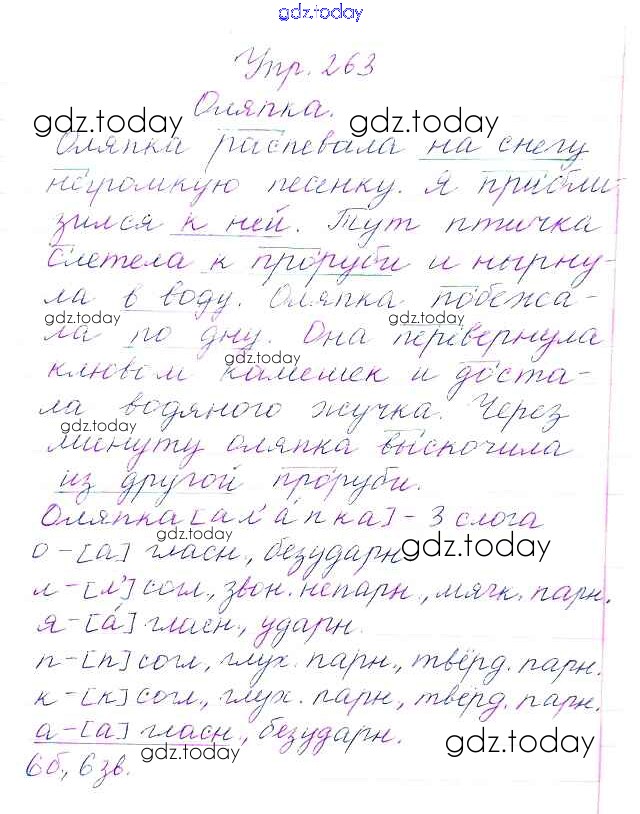 gdz.today
Упр. 263
Оляпка.
gdz.today gdz.today
Оляпка распевала на снегу
негромкую песенку. Я прибли-
зился к ней. Тут птичка
слетела к проруби и нырну-
ла в воду. Оляпка побежа-
gdz.today gdz.today
ла по дну. Она перевернула
gdz.today
клювом камешек и доста-
ла водяного жучка. Через
gdz.today
минуту оляпка выскочила
из другой проруби.
Оляпка [ал'áпка] - 3 слога
о - [а] гласн., безударн. gdz.today
л - [л'] согл., звон. непарн., мягк. парн.
я - [á] гласн., ударн.
п - [п] согл., глух. парн., твёрд. парн.
к - [к] согл., глух. парн., твёрд. парн.
а - [а] гласн., безударн.
gdz.today gdz.today
6б., 6 зв.